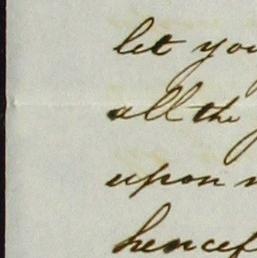 let you
all the
upon
hencef